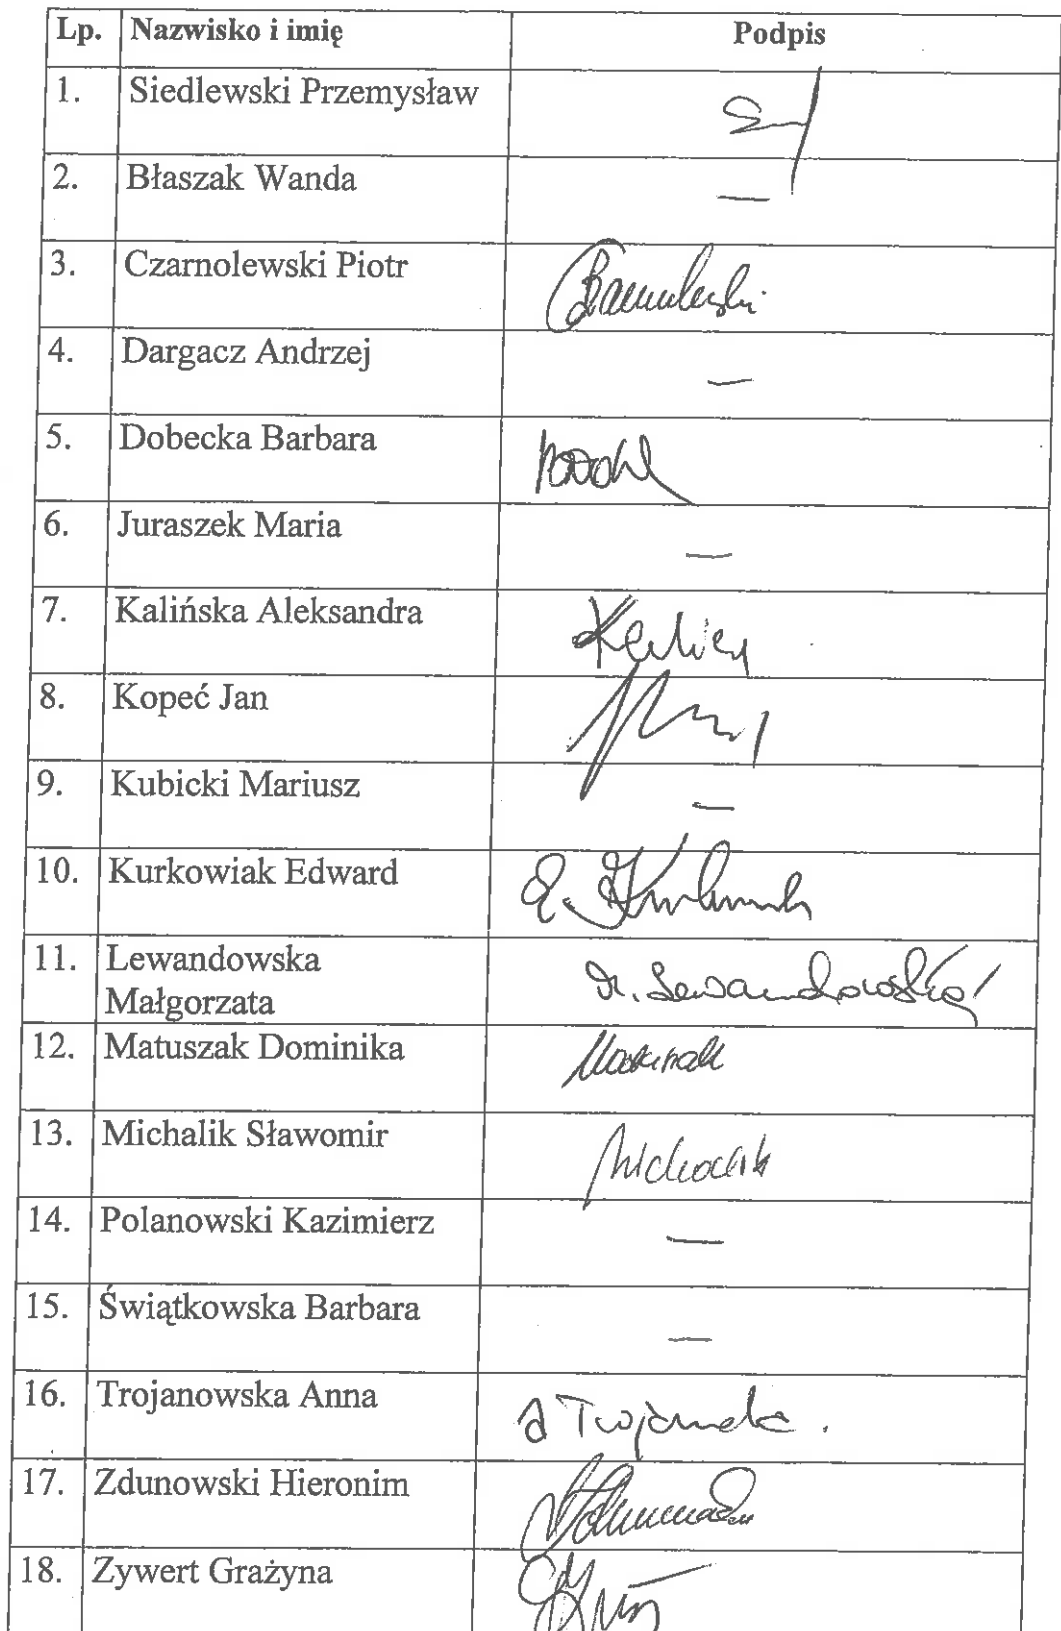 Lp. Nazwisko i imię Podpis
1. Siedlewski Przemysław
2. Błaszak Wanda —
3. Czarnolewski Piotr
4. Dargacz Andrzej —
5. Dobecka Barbara
6. Juraszek Maria —
7. Kalińska Aleksandra
8. Kopeć Jan
9. Kubicki Mariusz —
10. Kurkowiak Edward
11. Lewandowska
Małgorzata M. Lewandowska
12. Matuszak Dominika Matuszak
13. Michalik Sławomir Michalik
14. Polanowski Kazimierz —
15. Świątkowska Barbara —
16. Trojanowska Anna
17. Zdunowski Hieronim
18. Zywert Grażyna